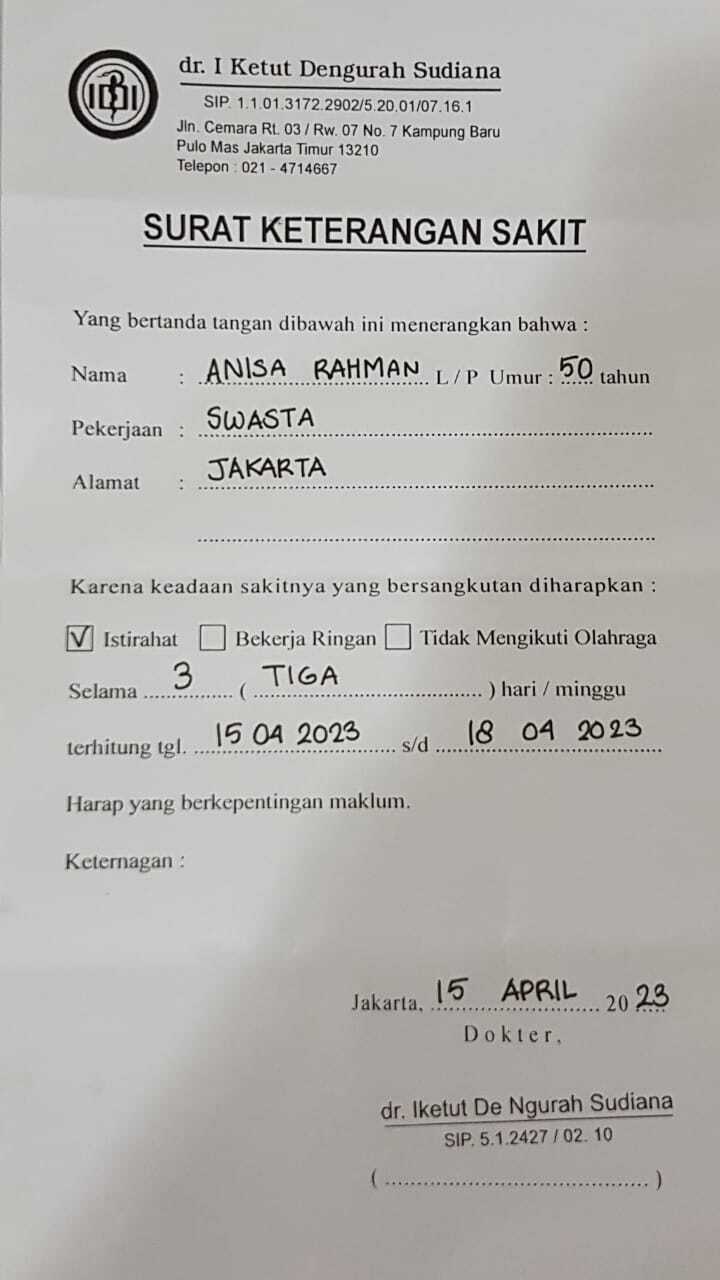 IDI
dr. I Ketut Dengurah Sudiana
SIP. 1.1.01.3172.2902/5.20.01/07.16.1
Jln. Cemara Rt. 03 / Rw. 07 No. 7 Kampung Baru
Pulo Mas Jakarta Timur 13210
Telepon : 021 - 4714667
SURAT KETERANGAN SAKIT
Yang bertanda tangan dibawah ini menerangkan bahwa :
Nama : ANISA RAHMAN L / P Umur : 50 tahun
Pekerjaan : SWASTA
Alamat : JAKARTA
Karena keadaan sakitnya yang bersangkutan diharapkan :
☑ Istirahat ☐ Bekerja Ringan ☐ Tidak Mengikuti Olahraga
Selama 3 ( TIGA ) hari / minggu
terhitung tgl. 15 04 2023 s/d 18 04 2023
Harap yang berkepentingan maklum.
Keternagan :
Jakarta, 15 APRIL 2023
Dokter,
dr. Iketut De Ngurah Sudiana
SIP. 5.1.2427 / 02. 10
(........................................)